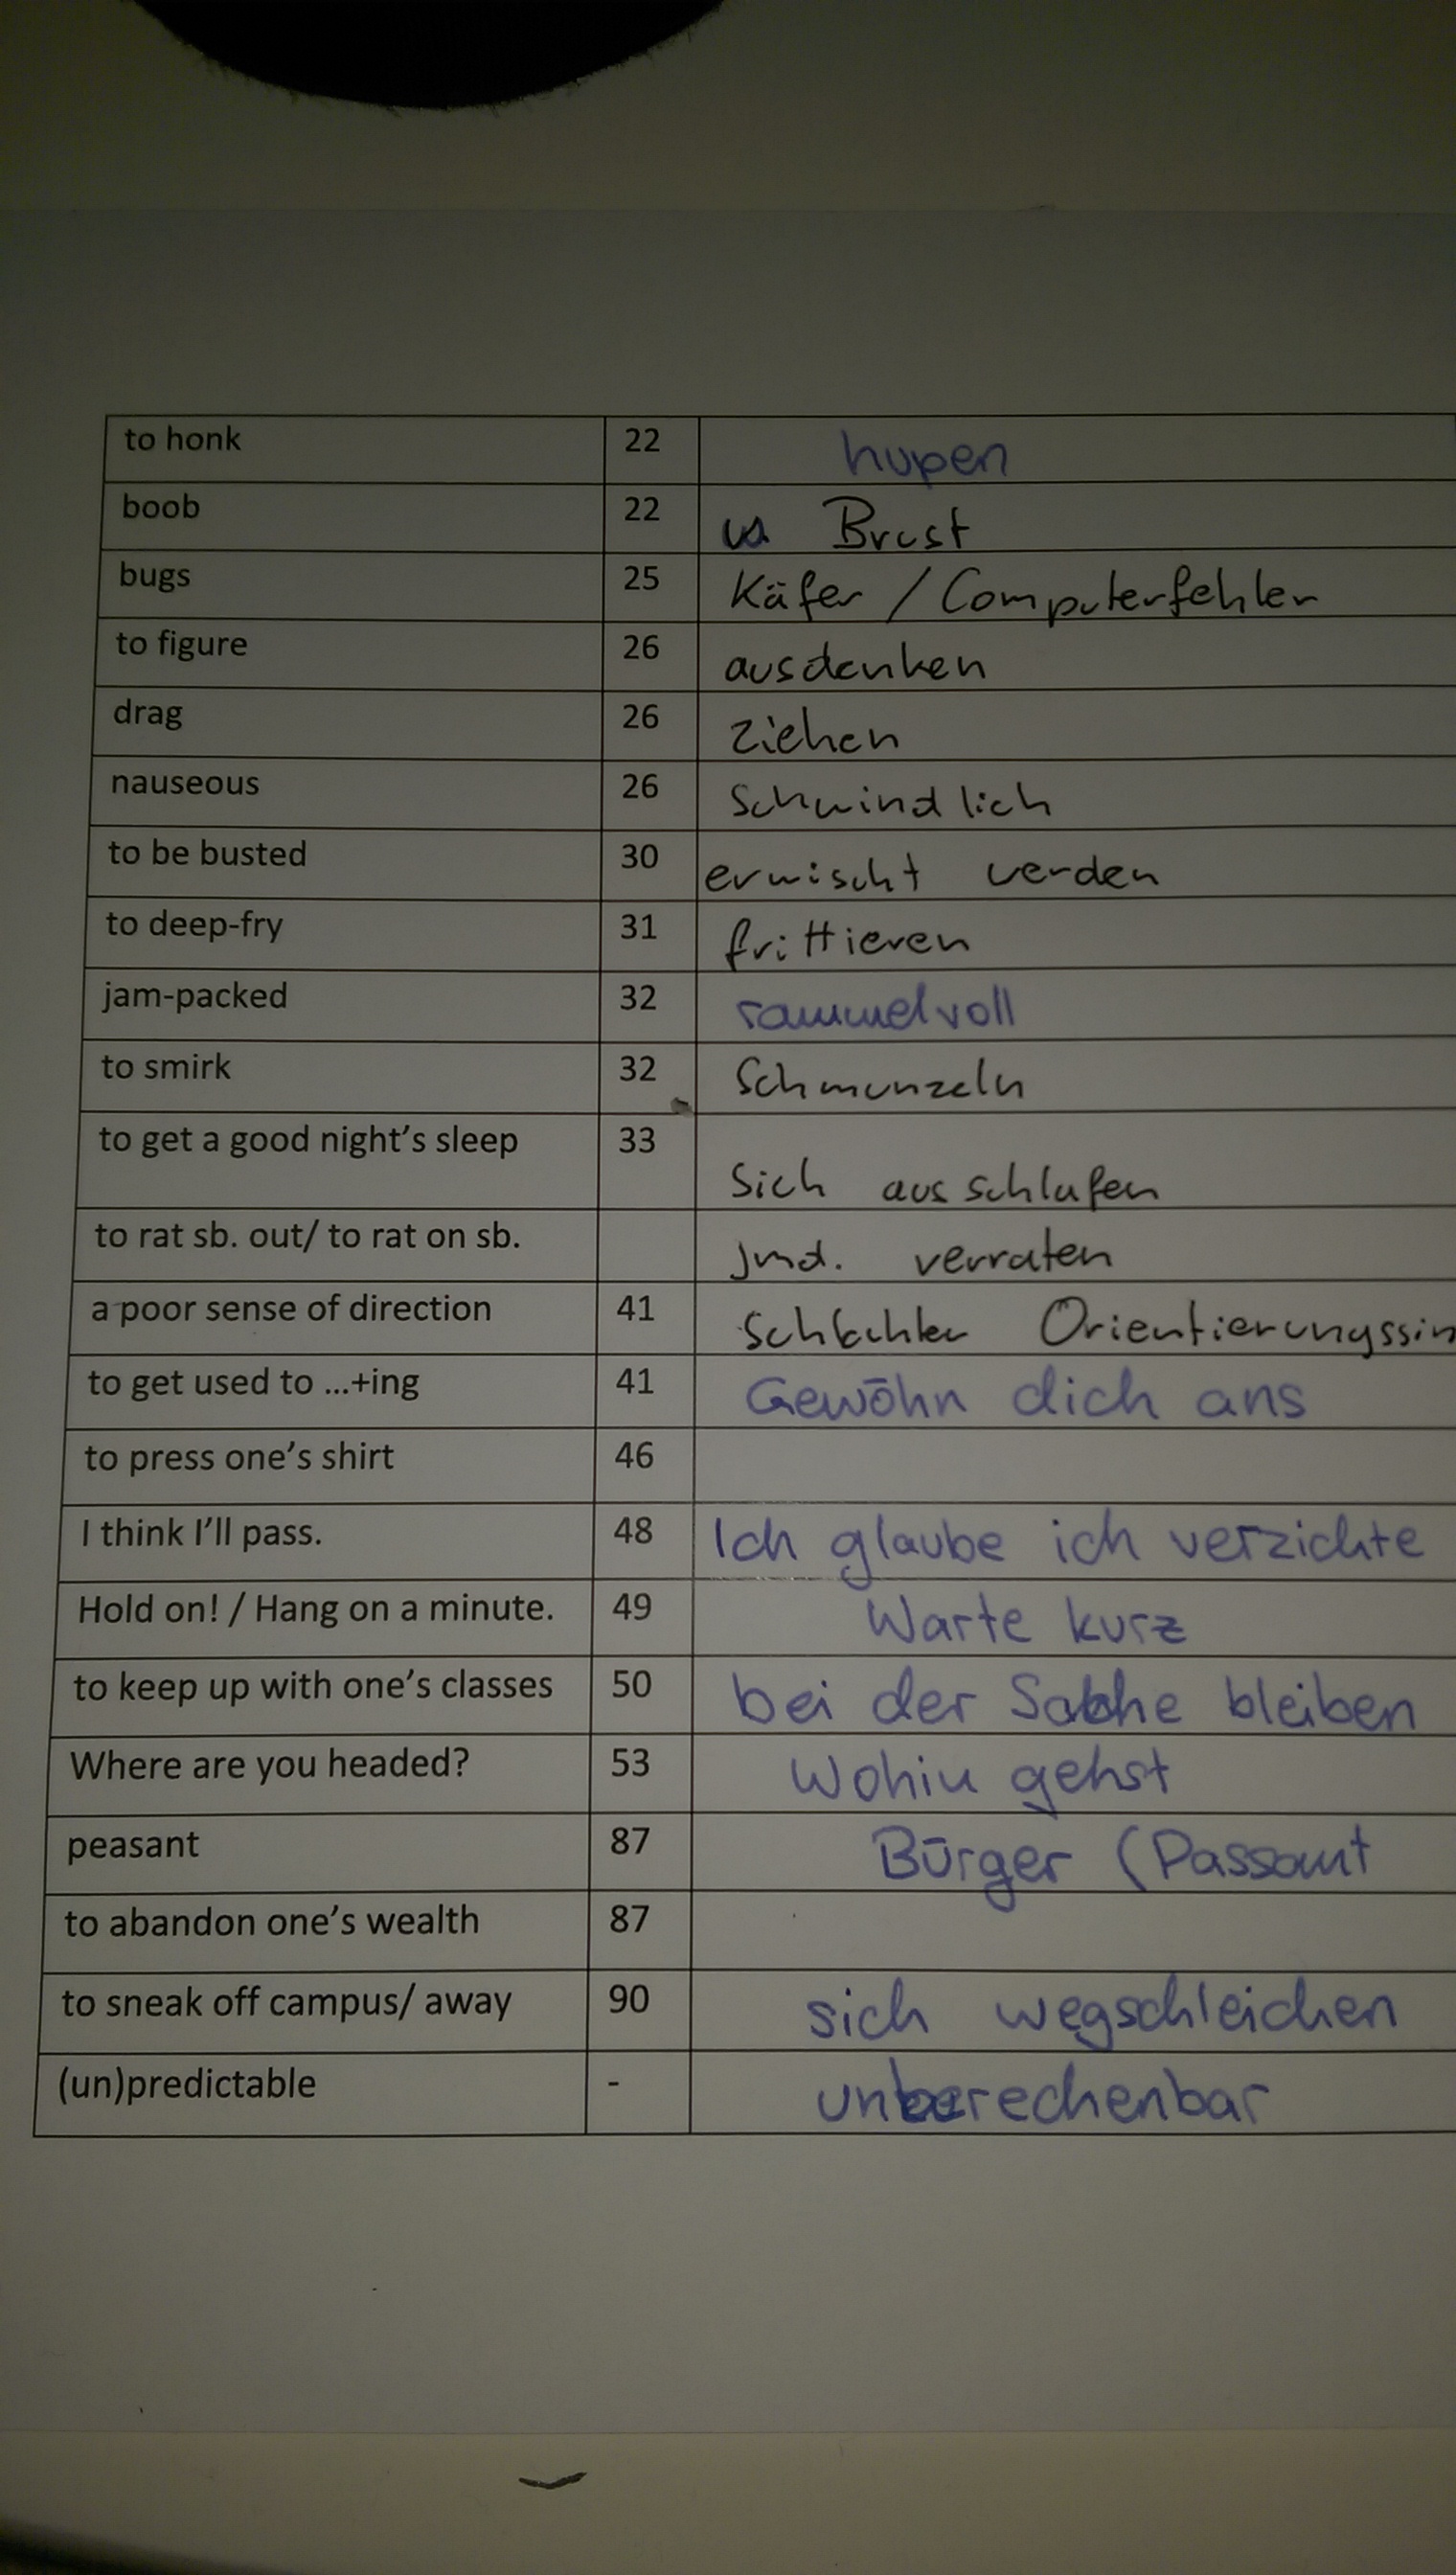 to honk 22 hupen
boob 22 Brust
bugs 25 Käfer / Computerfehler
to figure 26 ausdenken
drag 26 ziehen
nauseous 26 schwindlich
to be busted 30 erwischt werden
to deep-fry 31 frittieren
jam-packed 32 rammelvoll
to smirk 32 Schmunzeln
to get a good night's sleep 33 Sich ausschlafen
to rat sb. out/ to rat on sb. jmd. verraten
a poor sense of direction 41 schlechter Orientierungssin
to get used to ...+ing 41 Gewöhn dich ans
to press one's shirt 46
I think I'll pass. 48 Ich glaube ich verzichte
Hold on! / Hang on a minute. 49 Warte kurz
to keep up with one's classes 50 bei der Sache bleiben
Where are you headed? 53 Wohin gehst
peasant 87 Bürger (Passant
to abandon one's wealth 87
to sneak off campus/ away 90 sich wegschleichen
(un)predictable - unberechenbar